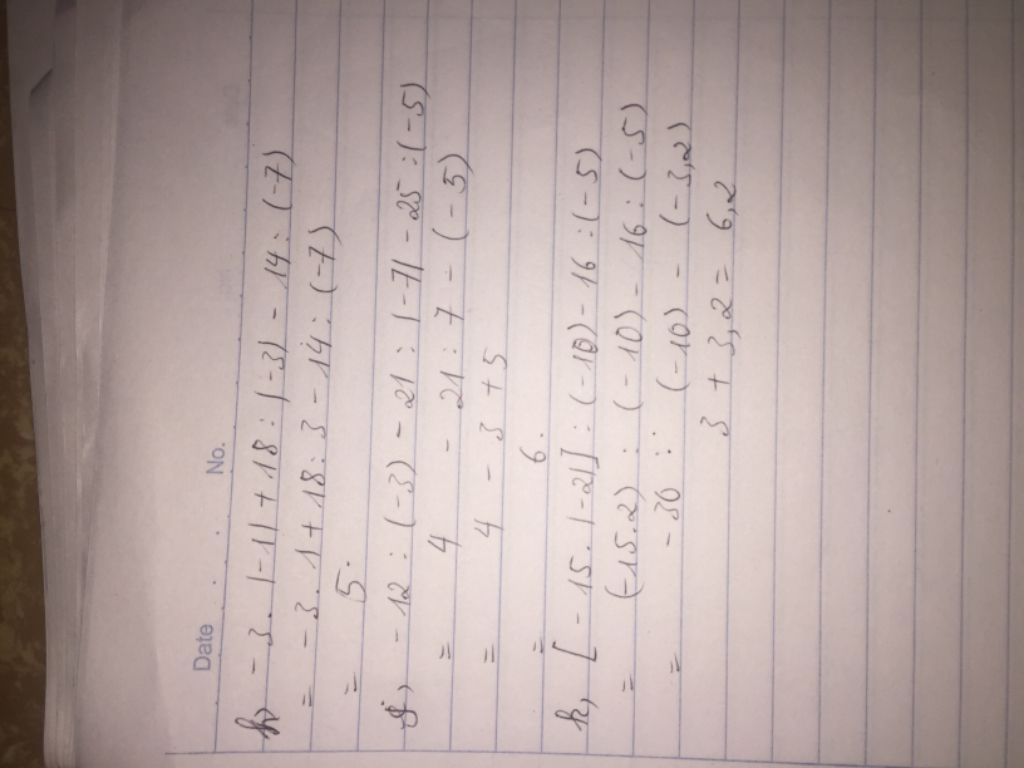 Date No.
h, - 3 . |-1| + 18 : |-3| - 14 : (-7)
= - 3 . 1 + 18 : 3 - 14 : (-7)
= 5.
g, - 12 : (-3) - 21 : |-7| - 25 : (-5)
= 4 - 21 : 7 - (-5)
= 4 - 3 + 5
= 6.
h, [ - 15 . |-2|] : (-10) - 16 : (-5)
= (-15.2) : (-10) - 16 : (-5)
= - 30 : (-10) - (-3,2)
3 + 3,2 = 6,2